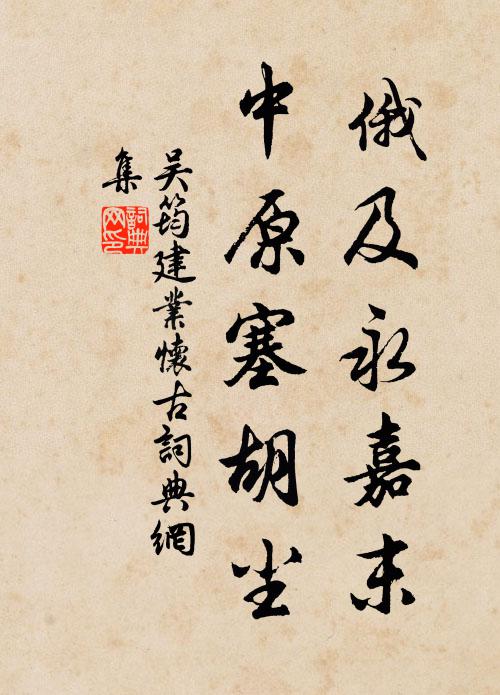 俄及永嘉末
中原塞胡尘
吴筠建業懷古詞典網
集
詞典网印